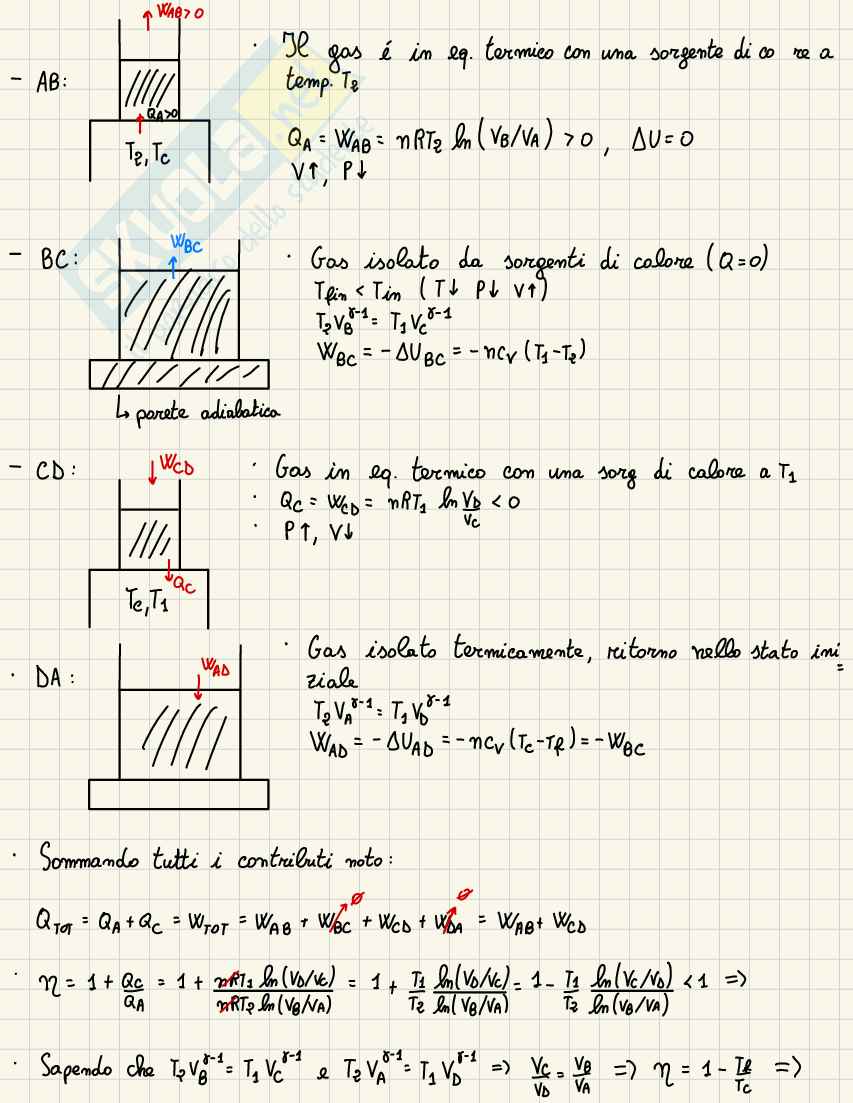 W_AB>0
- AB:
Q_A>0
T₂, T_C
· Il gas é in eq. termico con una sorgente di co re a
temp. T₂
Q_A = W_AB = nRT₂ ln(V_B/V_A) > 0 , ΔU = 0
V↑, P↓
- BC:
W_BC
· Gas isolato da sorgenti di calore (Q=0)
T_fin < T_in (T↓ P↓ V↑)
T₂V_B^γ-1 = T₁V_C^γ-1
W_BC = -ΔU_BC = -nc_V (T₁-T₂)
↳ parete adiabatica
- CD:
W_CD
· Gas in eq. termico con una sorg di calore a T₁
· Q_C = W_CD = nRT₁ ln V_D/V_C < 0
· P↑, V↓
Q_C
T_C, T₁
· DA:
W_AD
· Gas isolato termicamente, ritorno nello stato ini
ziale
T₂V_A^γ-1 = T₁V_D^γ-1
W_AD = -ΔU_AD = -nc_V (T_C-T_f) = -W_BC
· Sommando tutti i contributi noto:
Q_TOT = Q_A + Q_C = W_TOT = W_AB + W_BC + W_CD + W_DA = W_AB + W_CD
· η = 1 + Q_C/Q_A = 1 + nRT₁ ln(V_D/V_C)/nRT₂ ln(V_B/V_A) = 1 + T₁/T₂ ln(V_D/V_C)/ln(V_B/V_A) = 1 - T₁/T₂ ln(V_C/V_D)/ln(V_B/V_A) < 1 =>
· Sapendo che T₂V_B^γ-1 = T₁V_C^γ-1 e T₂V_A^γ-1 = T₁V_D^γ-1 => V_C/V_D = V_B/V_A => η = 1 - T_f/T_C =>
SKUOLA.net